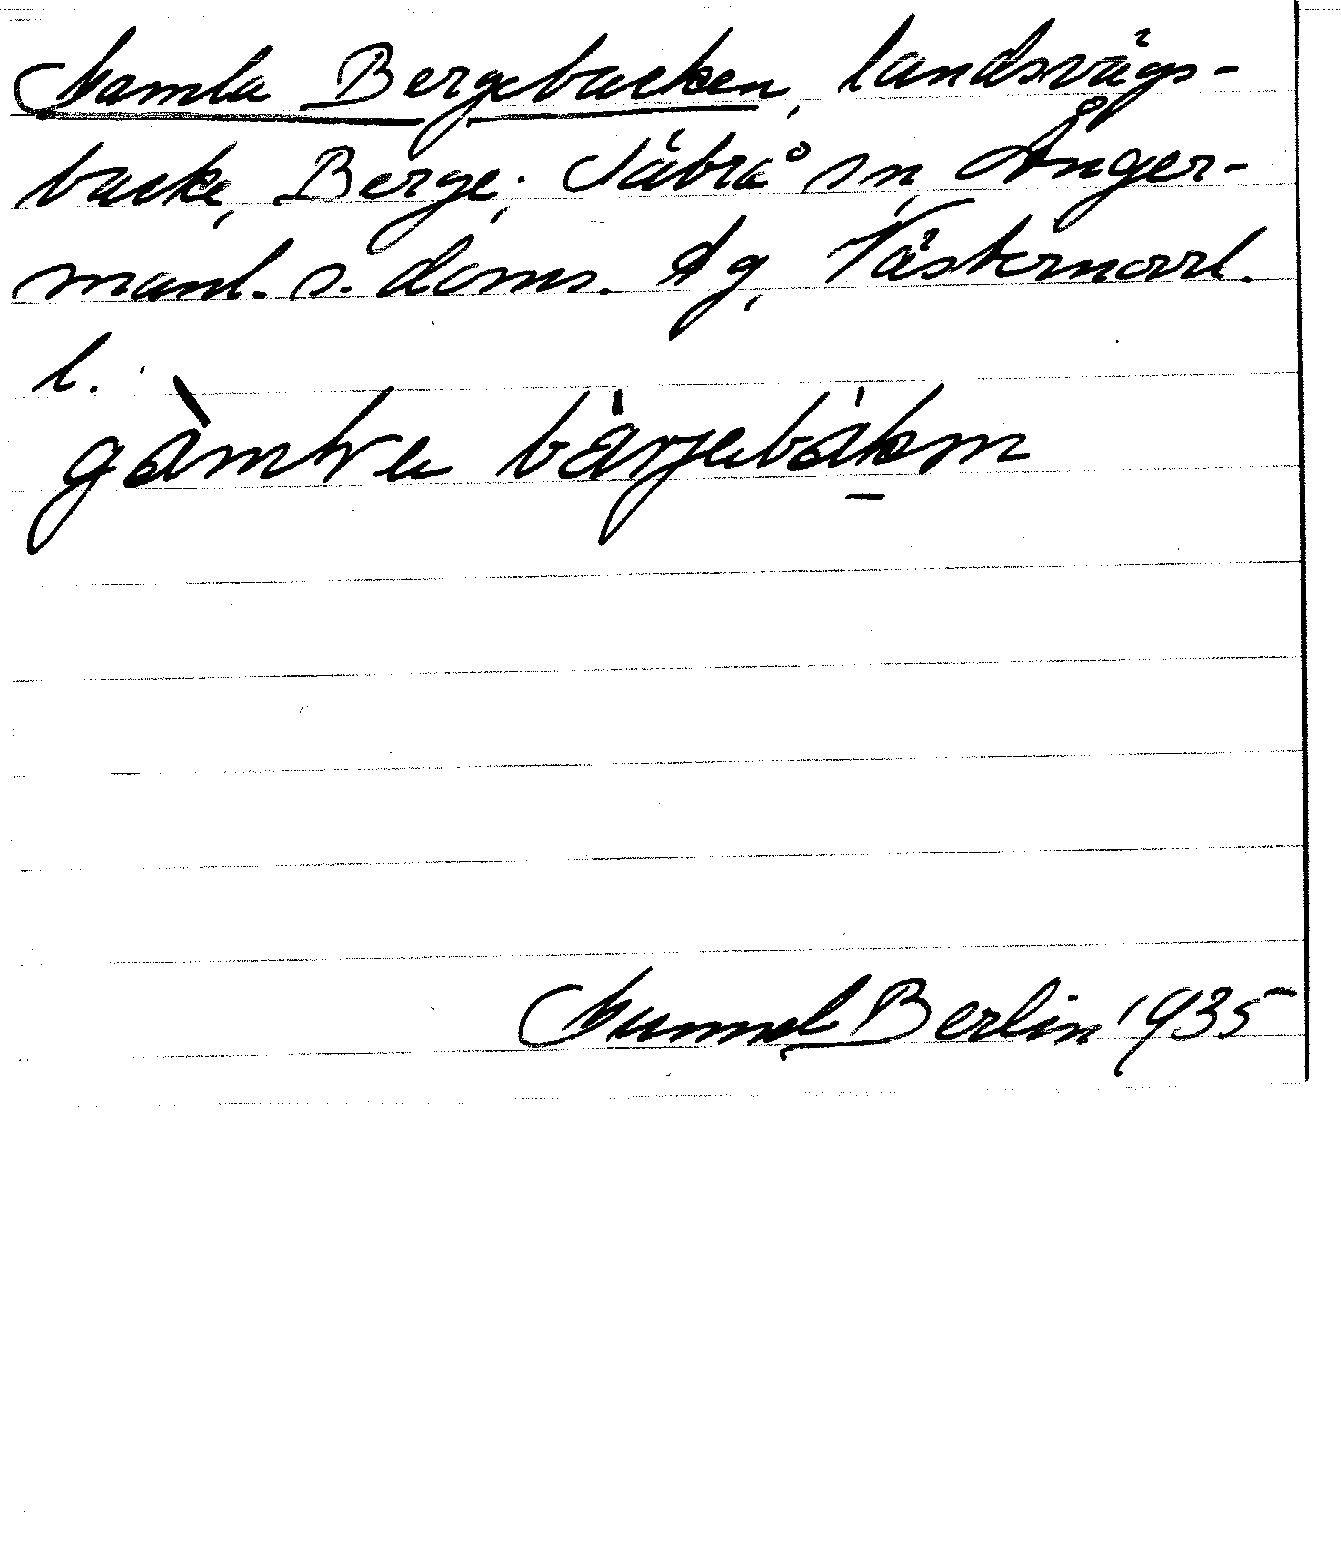 Gamla Bergebacken, landsvägs-
backe, Berge; Säbrå sn, Ånger-
manl. s. doms. dg, Västernorrl.
l.
Gunnel Berlin 1935